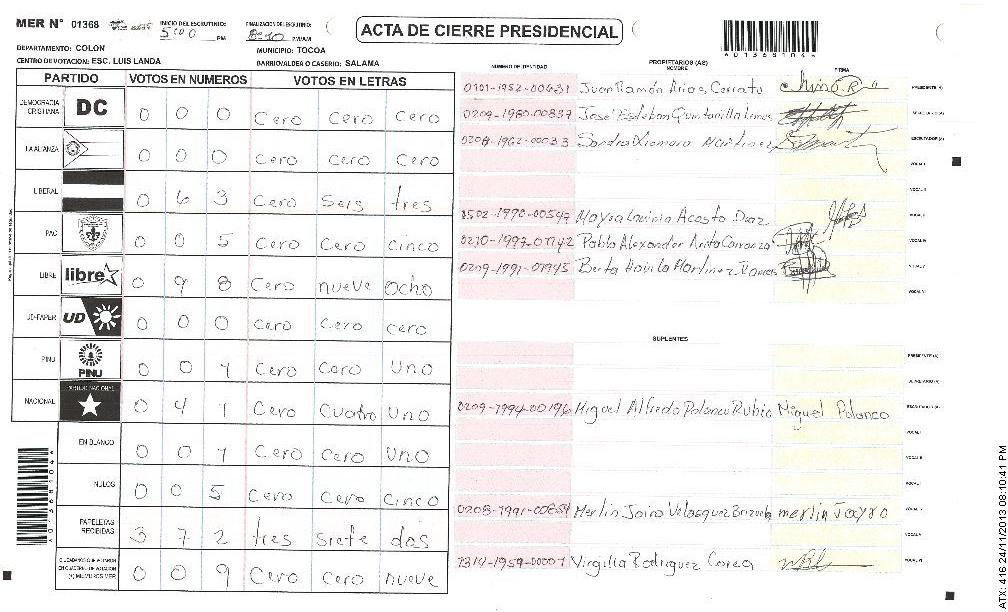 MER N° 01368 INICIO DEL ESCRUTINIO: 5:00 PM FINALIZACION ESCRUTINIO: 8:10 PM/AM
ACTA DE CIERRE PRESIDENCIAL
A01368104
DEPARTAMENTO: COLON MUNICIPIO: TOCOA
CENTRO DE VOTACION: ESC. LUIS LANDA BARRIO/ALDEA O CASERIO: SALAMA
PARTIDO VOTOS EN NUMEROS VOTOS EN LETRAS
DEMOCRACIA CRISTIANA DC 0 0 0 Cero Cero Cero
LA ALIANZA 0 0 0 Cero Cero Cero
LIBERAL 0 6 3 Cero Seis tres
PAC 0 0 5 Cero Cero cinco
LIBRE libre 0 9 8 Cero nueve ocho
UD-FAPER UD 0 0 0 Cero Cero cero
PINU PINU 0 0 1 Cero Cero Uno
NACIONAL PARTIDO NACIONAL 0 4 1 Cero Cuatro Uno
EN BLANCO 0 0 1 Cero Cero Uno
NULOS 0 0 5 Cero Cero Cinco
PAPELETAS RECIBIDAS 3 7 2 tres siete dos
CIUDADANOS QUE VOTARON EN CUADERNO DE VOTACION (+) MIEMBROS MER 0 0 9 Cero Cero nueve
A01368104
NUMERO DE IDENTIDAD PROPIETARIOS (AS) NOMBRE FIRMA
0101-1952-00431 Juan Ramón Arias Cerrato PRESIDENTE (A)
0209-1980-00837 José Esteban Quintanilla Lemus SECRETARIO (A)
0208-1962-00033 Sandra Xiomara Martinez ESCRUTADOR (A)
VOCAL I
VOCAL II
1502-1970-00547 Mayra Acosta Diaz VOCAL III
0210-1997-01142 Pablo Alexander Carranza VOCAL IV
0209-1991-01945 Berta Martinez Ramos VOCAL V
VOCAL VI
SUPLENTES
PRESIDENTE (A)
SECRETARIO (A)
0209-1994-00196 Miguel Alfredo Polanco Rubio Miguel Polanco ESCRUTADOR (A)
VOCAL I
VOCAL II
VOCAL III
0208-1991-00854 Merlin Jairo Velasquez merlin VOCAL IV
VOCAL V
1314-1959-00001 Virgilia Rodriguez Correa VOCAL VI
ATX: 416 24/11/2013 08:10:41 PM